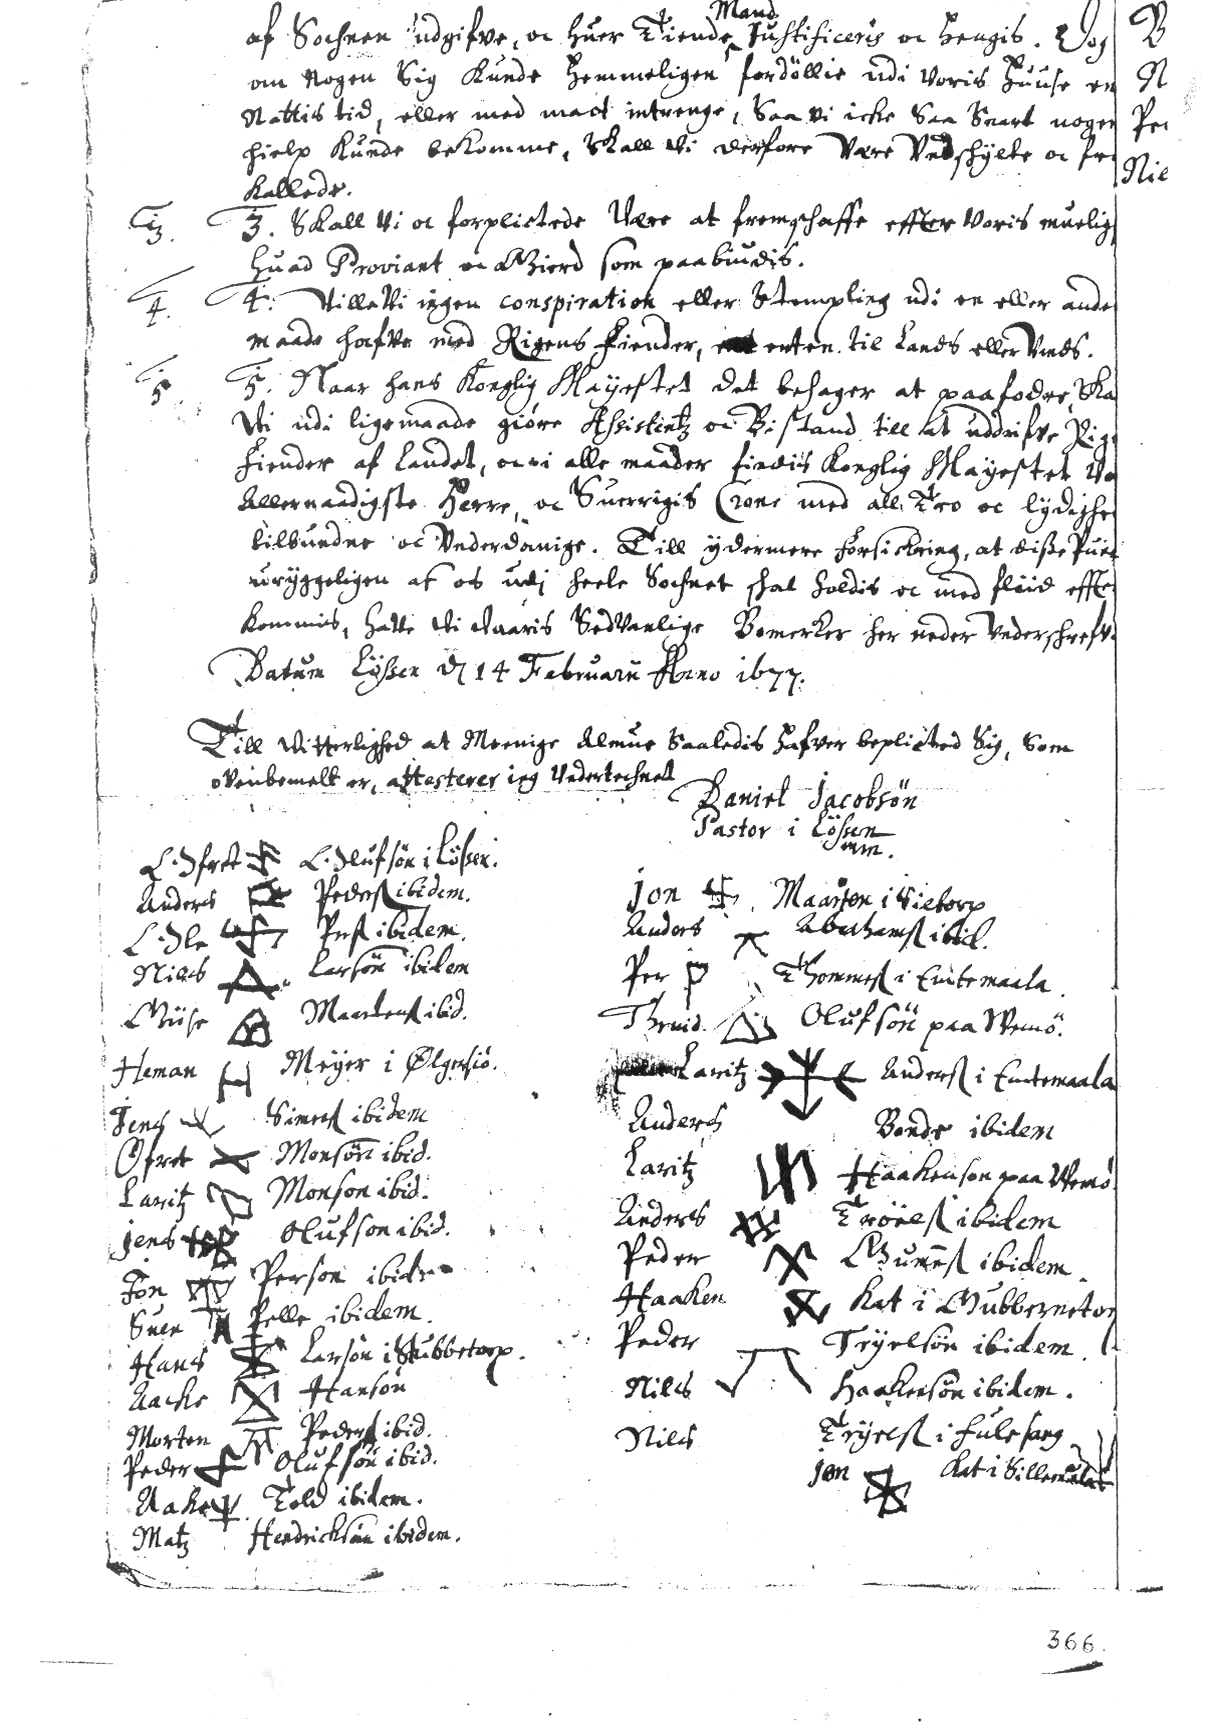 Mand
af Sochnen udgifve, oc huer Tiende Justificeris oc hengis. Dog
om nogen Sig kunde hemmeligen fordöllie udi voris huuse en
Nattis tid, eller med mact intrenge, Saa vi icke Saa Snart nogen
hielp kunde bekomme, Skall vi derfore være
kallede.
3. 3. Skall vi oc forplictede være at fremschaffe effter voris muelig
huad Proviant oc Gierd som paabiudis.
4. 4. Ville Vi ingen conspiration eller Stempling udi en eller ande
maade hafve med Rigens Fiender, enten til Lands eller Vands.
5. 5. Naar hans Konglig Mayestet det behager at paafodre, Ska
Vi udi ligemaade giöre Assistentz oc Bistand till at uddrifve Rig
Fiender af Landet, oc i alle maader findis Konglig Mayestet Vo
Allernaadigste Herre, oc Suerrigis Crone med all Tro oc lydighe
tilbundne oc Underdanige. Till ydermere Forsickring, at disse Pun
uryggeligen af os udj heele Sochnet skal holdis oc med fliid effte
kommis, hafve Vi Vaaris Sedvanlige Bomercker her neder Underschrefv
Datum Lössen d 14 Februarii Anno 1677.
Till Vitterlighed at Meenige Almue Saaledis hafver beplicted Sig, Som
ovenbemelt er, attesterer ieg Undertechnet
Daniel Jacobsön
Pastor i Lössen
mm.
L. Ofret L. Olufsön i Lössen.
Anders Peders ibidem.
L. Ole Pers ibidem.
Niels Larsön ibidem
Giise Maartens ibid.
Heman Meyer i Ølgersiö.
Jens Simens ibidem
Ofret Monsön ibid.
Laritz Monson ibid.
Jens Olufson ibid.
Jon Person ibid
Suen Pelle ibidem.
Hans Larsön i Stubbetorp.
Aacke Hansön
Morten Peders ibid.
Peder Olufsön ibid.
Aake Told ibidem.
Matz Hendricksön ibidem.
Jon Maarten i Vietorp
Anders Abrahams ibid.
Per Thommes i Emtemaala
Truid Olufsön paa Wemö.
Laritz Anders i Emtemaala
Anders Bonde ibidem
Laritz Haakenson paa Wemö
Anders Tröels ibidem
Peder Gunnes ibidem.
Haaken Kat i Gubbernetor
Peder Tryelsön ibidem.
Niles Haakensön ibidem.
Niles Tryels i Fulesang
Jon Kat i Sillemaala
B
N
Pe
Nie
366.